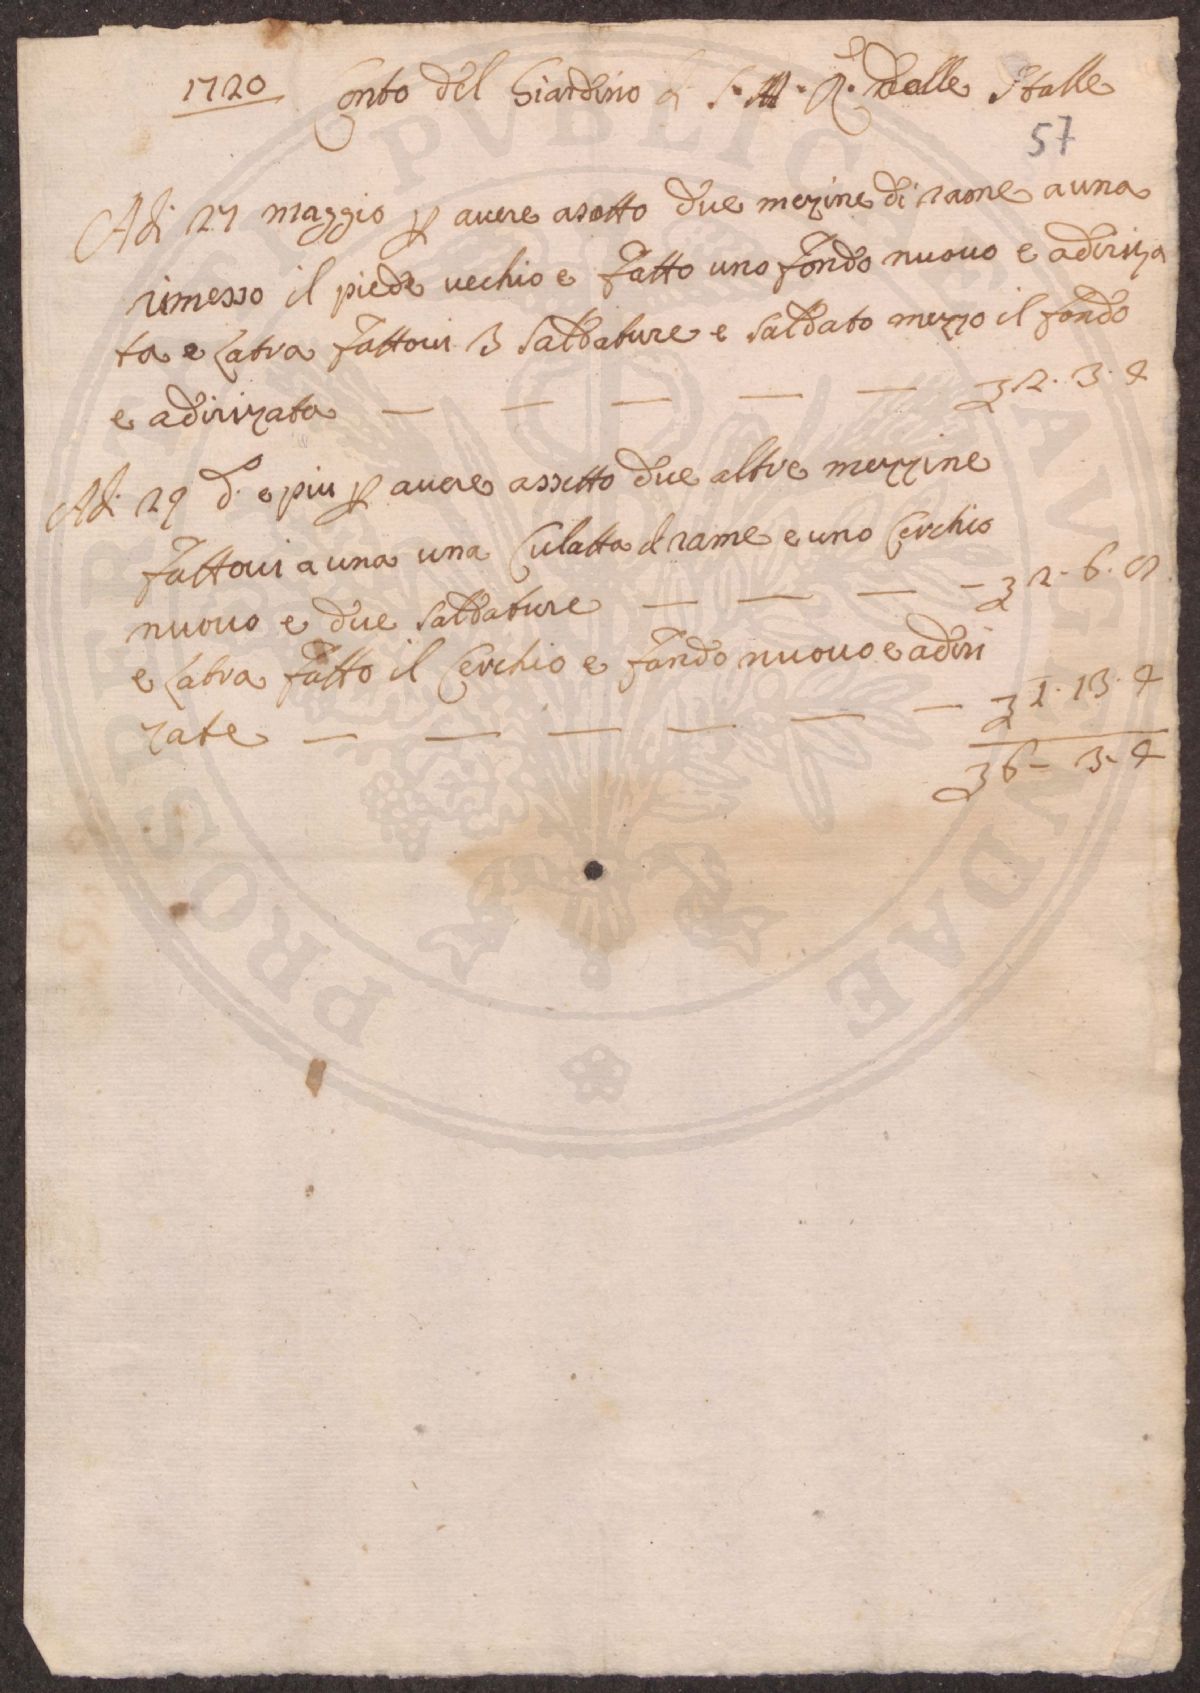 1720 Conto del Giardino di S. M. R. dalle Stalle
57
Adi 27 maggio p avere asetto due mezine di rame a una
rimesso il piede vechio e fatto uno fondo nuovo e adiriza
ta e latra fattovi 3 saldature e saldato mezzo il fondo
e adirizata — — — — — 2. 3. 4
Adi 29 d. e piu p avere assetto due altre mezzine
fattovi a una una Culatta di rame e uno Cerchio
nuovo e due saldature — — — — 2. 6. 8
e latra fatto il Cerchio e fondo nuovo e adiri
zate — — — — — — 1. 13. 4
6 – 3. 4
PROSPERITATI PVBLICAE AVGENDAE